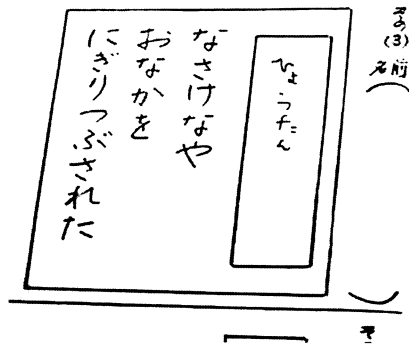 その(3)
名前
ひょうたん
なさけなや
おなかを
にぎりつぶされた